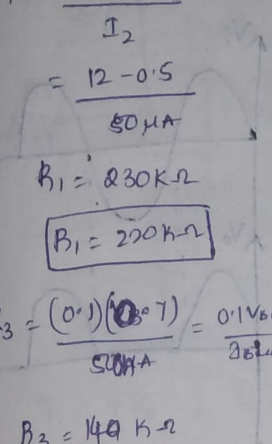 I2
= 12 - 0.5
50 μA
R1 = 230KΩ
R1 = 220KΩ
3 = (0.1)( 0.7) = 0.1V
50μA
R3 = 140 KΩ